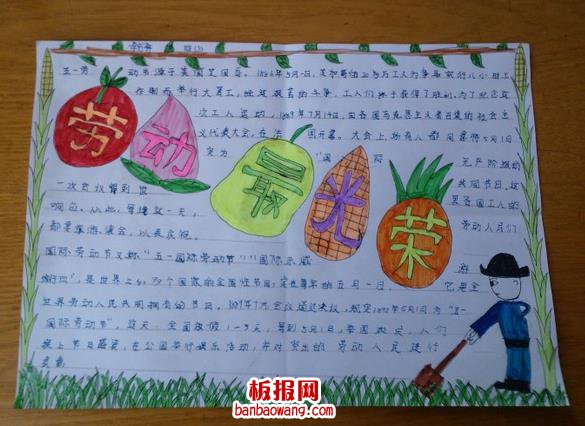 劳动最光荣
五一劳 动节源于美国芝加哥。1886年5月1日,芝加哥的 工人为争取实行八小时工
作制而举行大罢工,经过艰苦的斗争,工人们终于获得了胜利。为了纪念这
次工人运动,1889年7月14日,由各国马克思主义者召集的社会主
义代表大会,在法国开幕。大会上,所有人都同意将5月1日
定为 国际 无产阶级的
共同节日,这
一次会议得到世 界各国工人的
响应。从此,每逢这一天, 劳动人民们
都要 集会,以表庆祝。
国际劳动节又称"五一国际劳动节""国际示威 游
行日",是世界上 多个国家的全国性节日,定在每年的五月一日。 它是全
世界劳动人民共同拥有的节日。1889年7月会议通过决议,规定1890年5月1日为"五一
国际劳动节",这天 全国放假1-3天,等到5月1日,举国欢庆,人们
换上节日盛装,在公园举行娱乐活动,并对突出的劳动人民进行
奖励
板报网
banbaowang.com